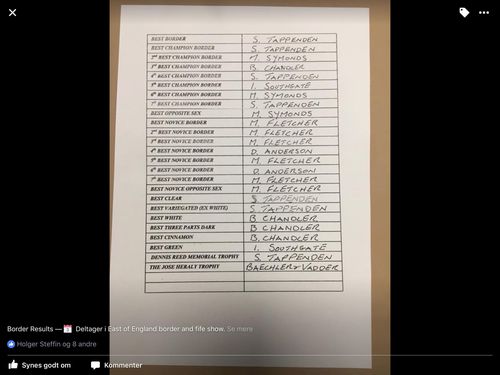 BEST BORDER S. TAPPENDEN
BEST CHAMPION BORDER S. TAPPENDEN
2nd BEST CHAMPION BORDER M. SYMONDS
3rd BEST CHAMPION BORDER B. CHANDLER
4th BEST CHAMPION BORDER S. TAPPENDEN
5th BEST CHAMPION BORDER I. SOUTHGATE
6th BEST CHAMPION BORDER M. SYMONDS
7th BEST CHAMPION BORDER S. TAPPENDEN
BEST OPPOSITE SEX M. SYMONDS
BEST NOVICE BORDER M. FLETCHER
2nd BEST NOVICE BORDER M. FLETCHER
3rd BEST NOVICE BORDER M. FLETCHER
4th BEST NOVICE BORDER D. ANDERSON
5th BEST NOVICE BORDER M. FLETCHER
6th BEST NOVICE BORDER D. ANDERSON
7th BEST NOVICE BORDER M. FLETCHER
BEST NOVICE OPPOSITE SEX M. FLETCHER
BEST CLEAR S. TAPPENDEN
BEST VARIEGATED (EX WHITE) S. TAPPENDEN
BEST WHITE B. CHANDLER
BEST THREE PARTS DARK B. CHANDLER
BEST CINNAMON B. CHANDLER
BEST GREEN I. SOUTHGATE
DENNIS REED MEMORIAL TROPHY S. TAPPENDEN
THE JOSE HERALY TROPHY BAECHLER + VADDER
Border Results — Deltager i East of England border and fife show. Se mere
Holger Steffin og 8 andre
Synes godt om Kommenter